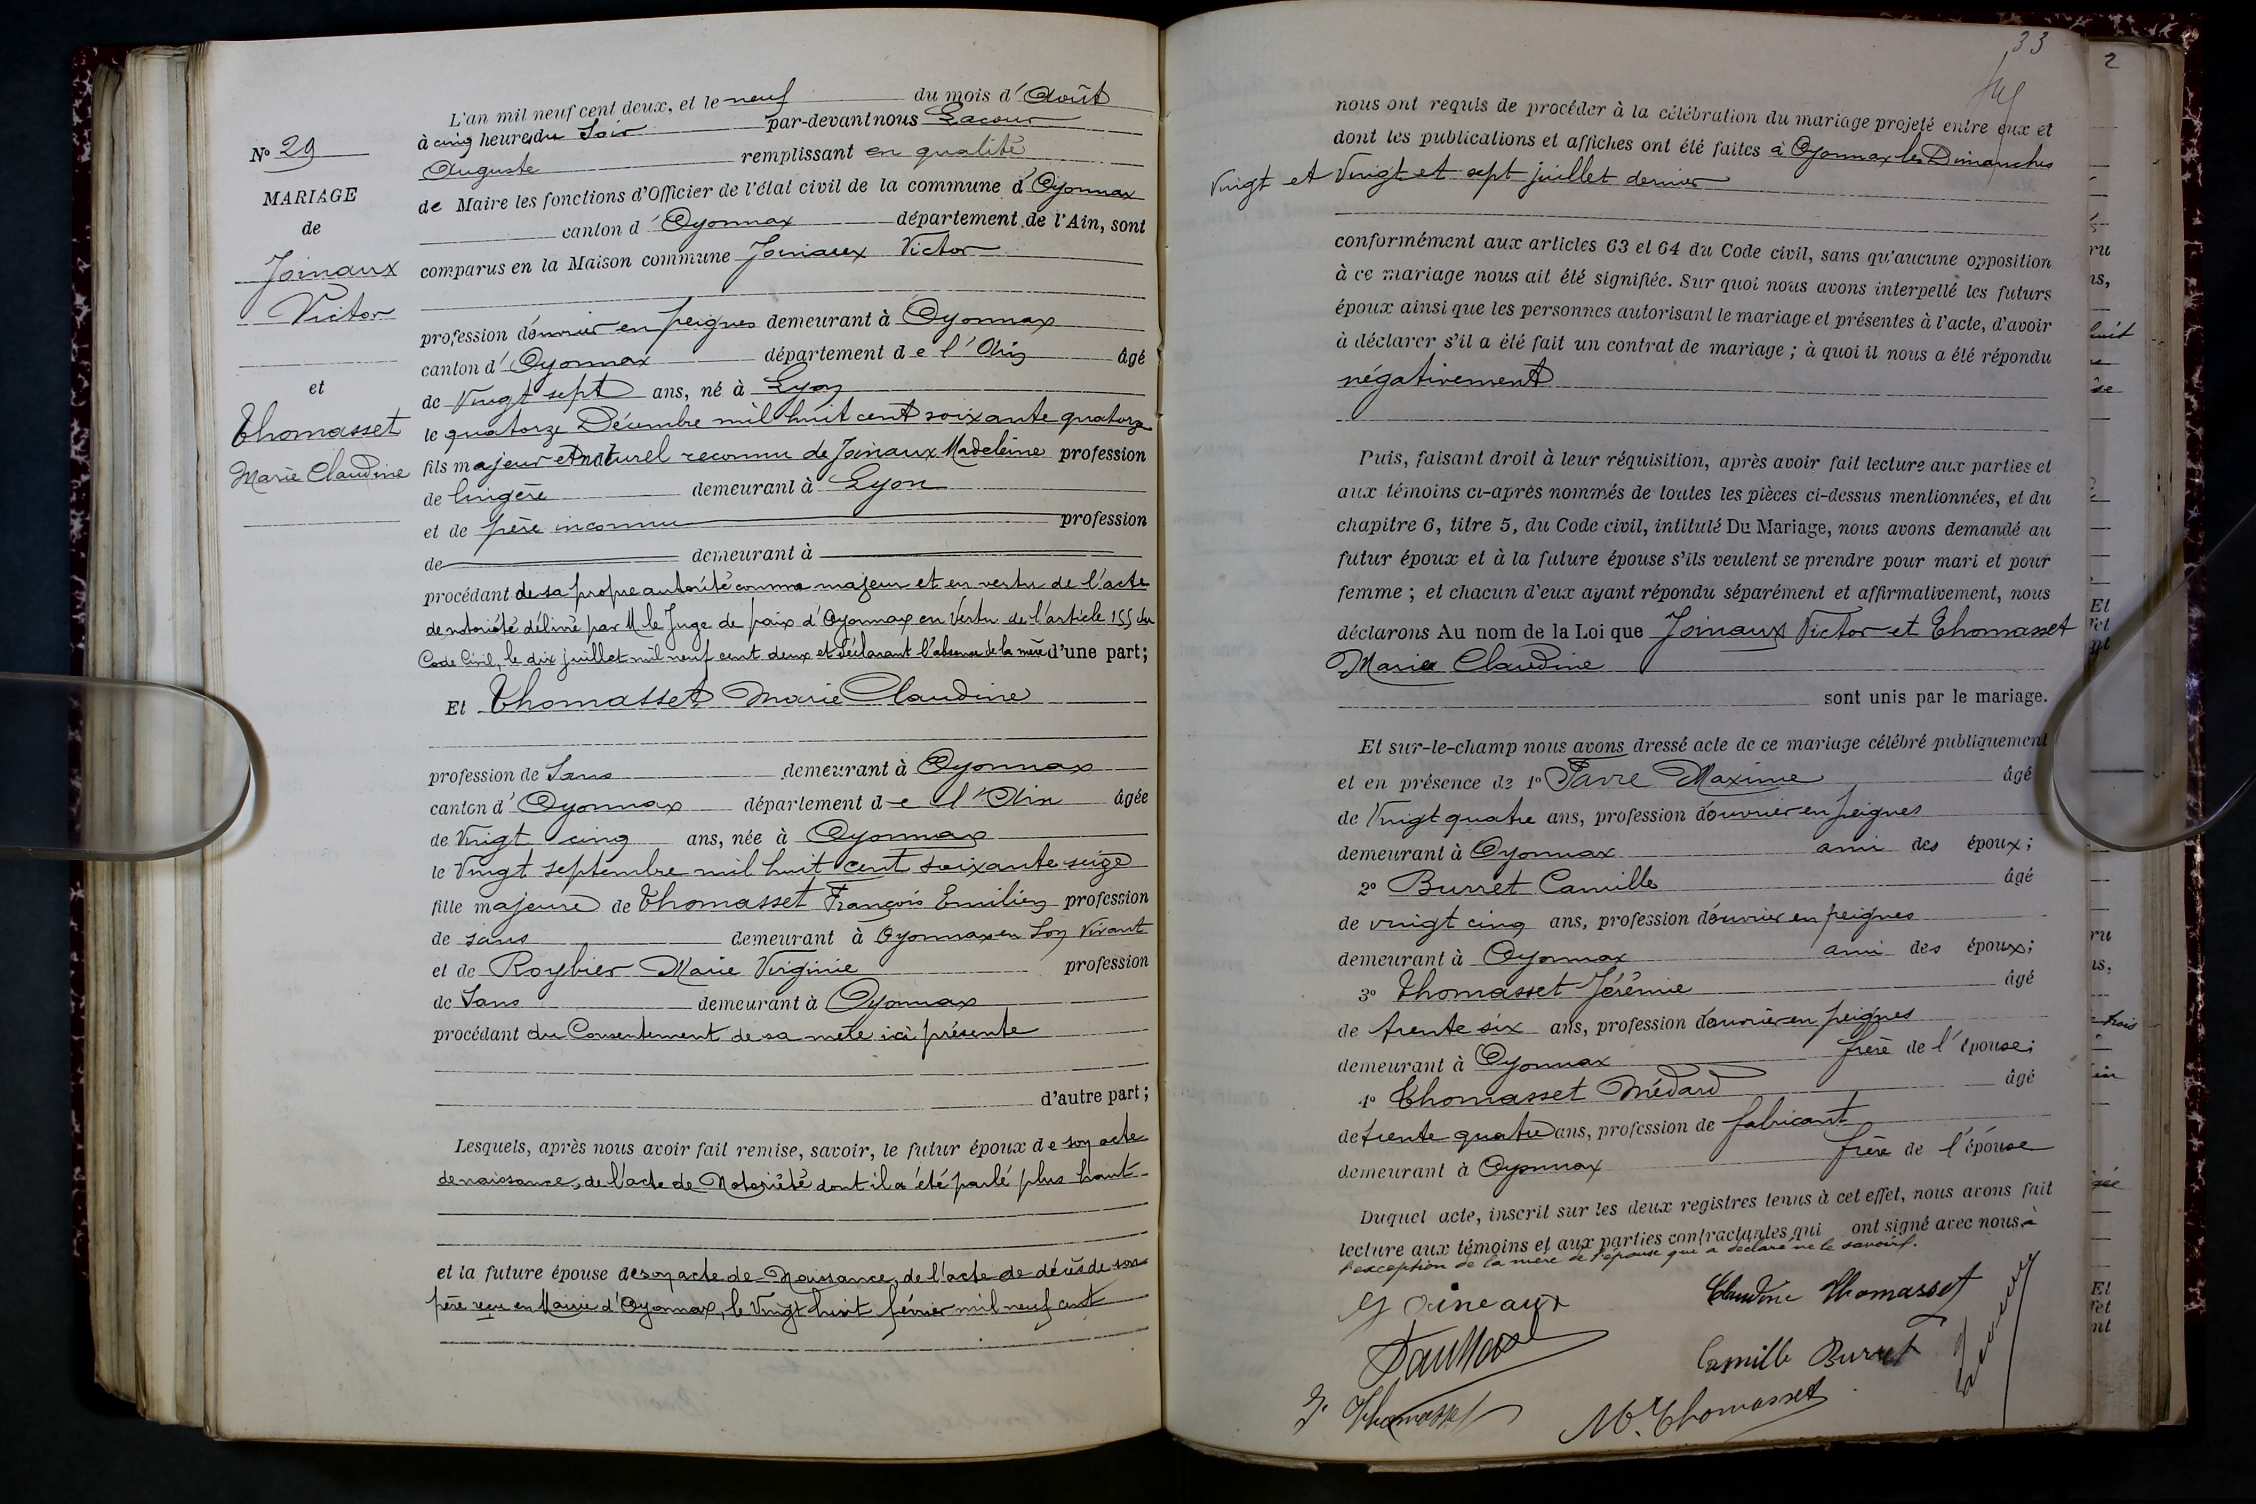 L'an mil neuf cent deux, et le neuf du mois d'Août
à cinq heures du Soir par-devant nous Lacour
Auguste remplissant en qualité
de Maire les fonctions d'Officier de l'état civil de la commune d'Oyonnax
canton d'Oyonnax département de l'Ain, sont
comparus en la Maison commune Joinaux Victor
profession d'ouvrier en peignes demeurant à Oyonnax
canton d'Oyonnax département de l'Ain âgé
de Vingt sept ans, né à Lyon
le quatorze Décembre mil huit cent soixante quatorze
fils majeur et naturel reconnu de Joinaux Madeleine profession
de lingère demeurant à Lyon
et de père inconnu profession
de demeurant à
procédant de sa propre autorité comme majeur et en vertu de l'acte
de notoriété délivré par M le Juge de paix d'Oyonnax en Vertu de l'article 155 du
Code Civil, le dix juillet mil neuf cent deux et déclarant l'absence de la mère d'une part;
Et Thomasset Marie Claudine
profession de Sans demeurant à Oyonnax
canton d'Oyonnax département de l'Ain âgée
de Vingt cinq ans, née à Oyonnax
le Vingt septembre mil huit cent soixante seize
fille majeure de Thomasset François Emilien profession
de sans demeurant à Oyonnax en Son Vivant
et de Roybier Marie Virginie profession
de Sans demeurant à Oyonnax
procédant du Consentement de sa mère ici présente
d'autre part;
Lesquels, après nous avoir fait remise, savoir, le futur époux de son acte
de naissance, de l'acte de Notoriété dont il a été parlé plus haut
et la future épouse de son acte de Naissance, de l'acte de décès de son
père reçu en Mairie d'Oyonnax, le Vingt huit février mil neuf cent
No 29
MARIAGE
de
Joinaux
Victor
et
Thomasset
Marie Claudine
33
nous ont requis de procéder à la célébration du mariage projeté entre eux et
dont les publications et affiches ont été faites à Oyonnax les Dimanches
Vingt et Vingt et sept juillet dernier
conformément aux articles 63 et 64 du Code civil, sans qu'aucune opposition
à ce mariage nous ait été signifiée. Sur quoi nous avons interpellé les futurs
époux ainsi que les personnes autorisant le mariage et présentes à l'acte, d'avoir
à déclarer s'il a été fait un contrat de mariage ; à quoi il nous a été répondu
négativement
Puis, faisant droit à leur réquisition, après avoir fait lecture aux parties et
aux témoins ci-après nommés de toutes les pièces ci-dessus mentionnées, et du
chapitre 6, titre 5, du Code civil, intitulé Du Mariage, nous avons demandé au
futur époux et à la future épouse s'ils veulent se prendre pour mari et pour
femme ; et chacun d'eux ayant répondu séparément et affirmativement, nous
déclarons Au nom de la Loi que Joinaux Victor et Thomasset
Marie Claudine
sont unis par le mariage.
Et sur-le-champ nous avons dressé acte de ce mariage célébré publiquement
et en présence de 1o Favre Maxime âgé
de Vingt quatre ans, profession d'ouvrier en peignes
demeurant à Oyonnax ami des époux;
2o Burret Camille âgé
de vingt cinq ans, profession d'ouvrier en peignes
demeurant à Oyonnax ami des époux;
3o Thomasset Jérémie âgé
de trente six ans, profession d'ouvrier en peignes
demeurant à Oyonnax frère de l'épouse;
4o Thomasset Médard âgé
de trente quatre ans, profession de fabricant
demeurant à Oyonnax frère de l'épouse
Duquel acte, inscrit sur les deux registres tenus à cet effet, nous avons fait
lecture aux témoins et aux parties contractantes qui ont signé avec nous à
l'exception de la mère de l'épouse qui a déclaré ne le savoir.
Joineaux
Claudine Thomasset
Camille Burret
J. Thomasset
M. Thomasset
Lacour